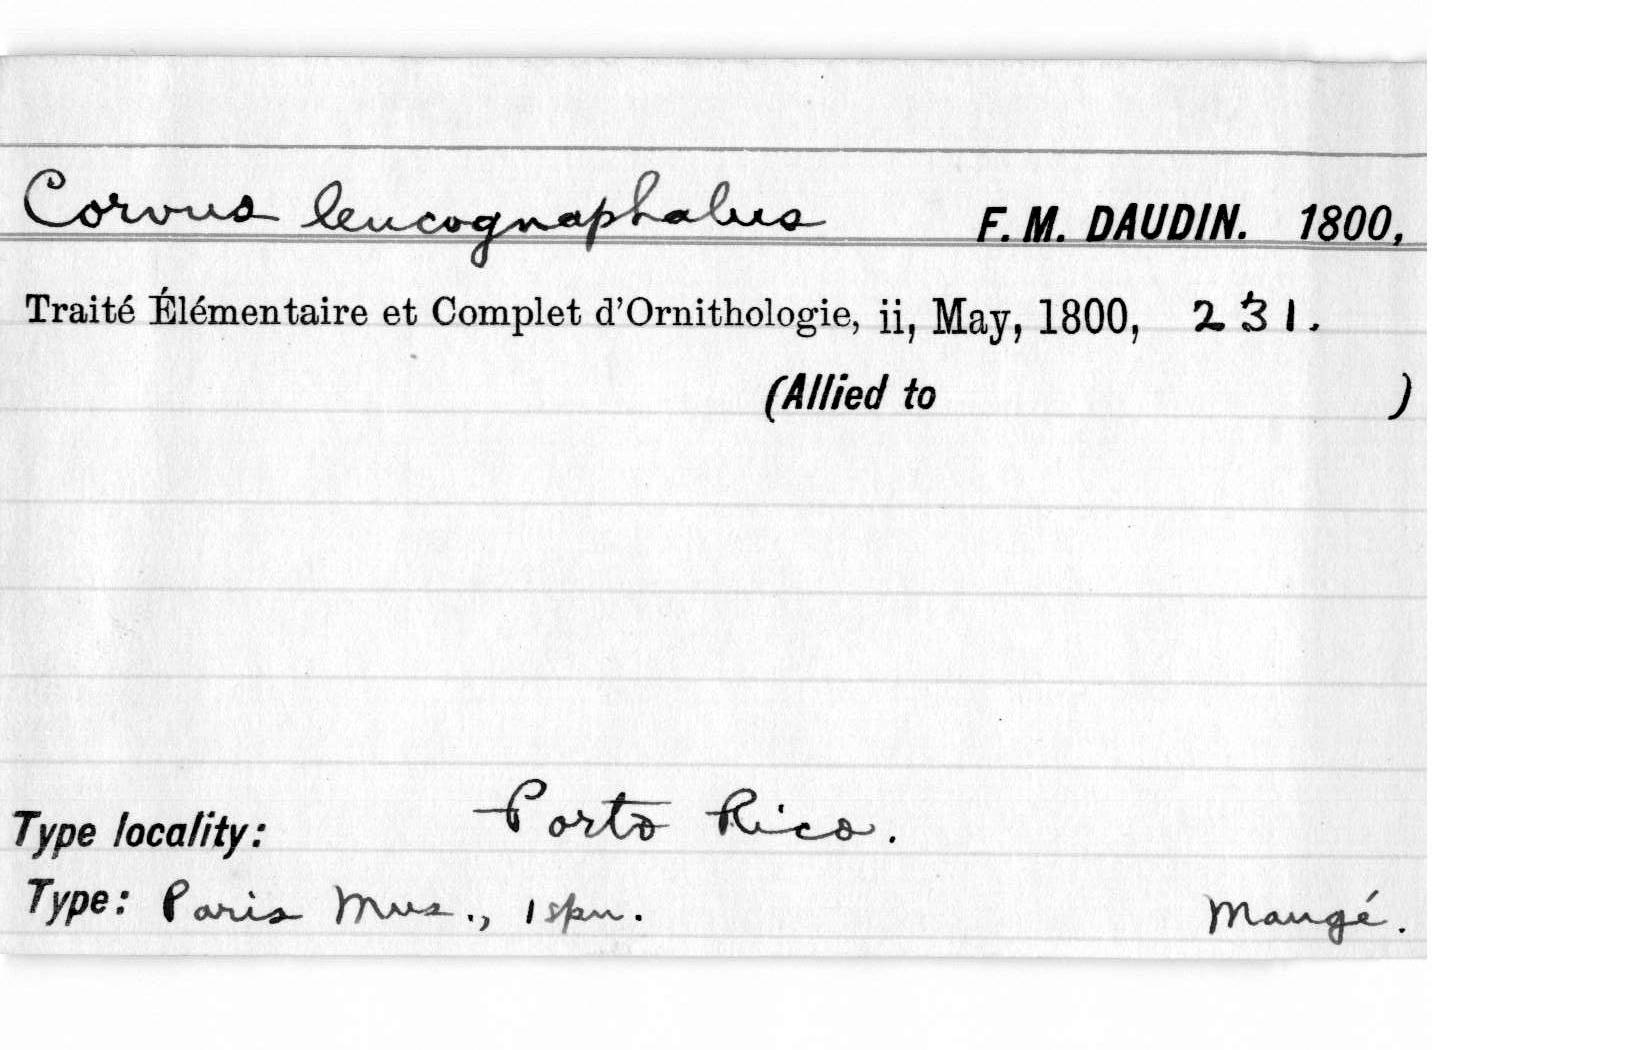 Corvus leucognaphalus F. M. DAUDIN. 1800,
Traité Élémentaire et Complet d'Ornithologie, ii, May, 1800, 231.
(Allied to )
Type locality: Porto Rico.
Type: Paris Mus., 1 spn. Maugé.